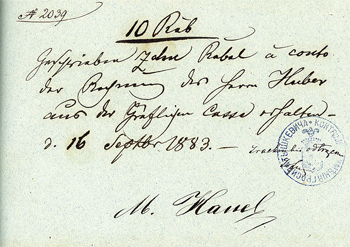 № 2039
10 Rub
Geschrieben Zehn Rubel à conto
der Rechnung des Herrn Huber
aus der Gräflichen Cassa erhalten
d. 16 Septbr 1883. —
M. Hanel